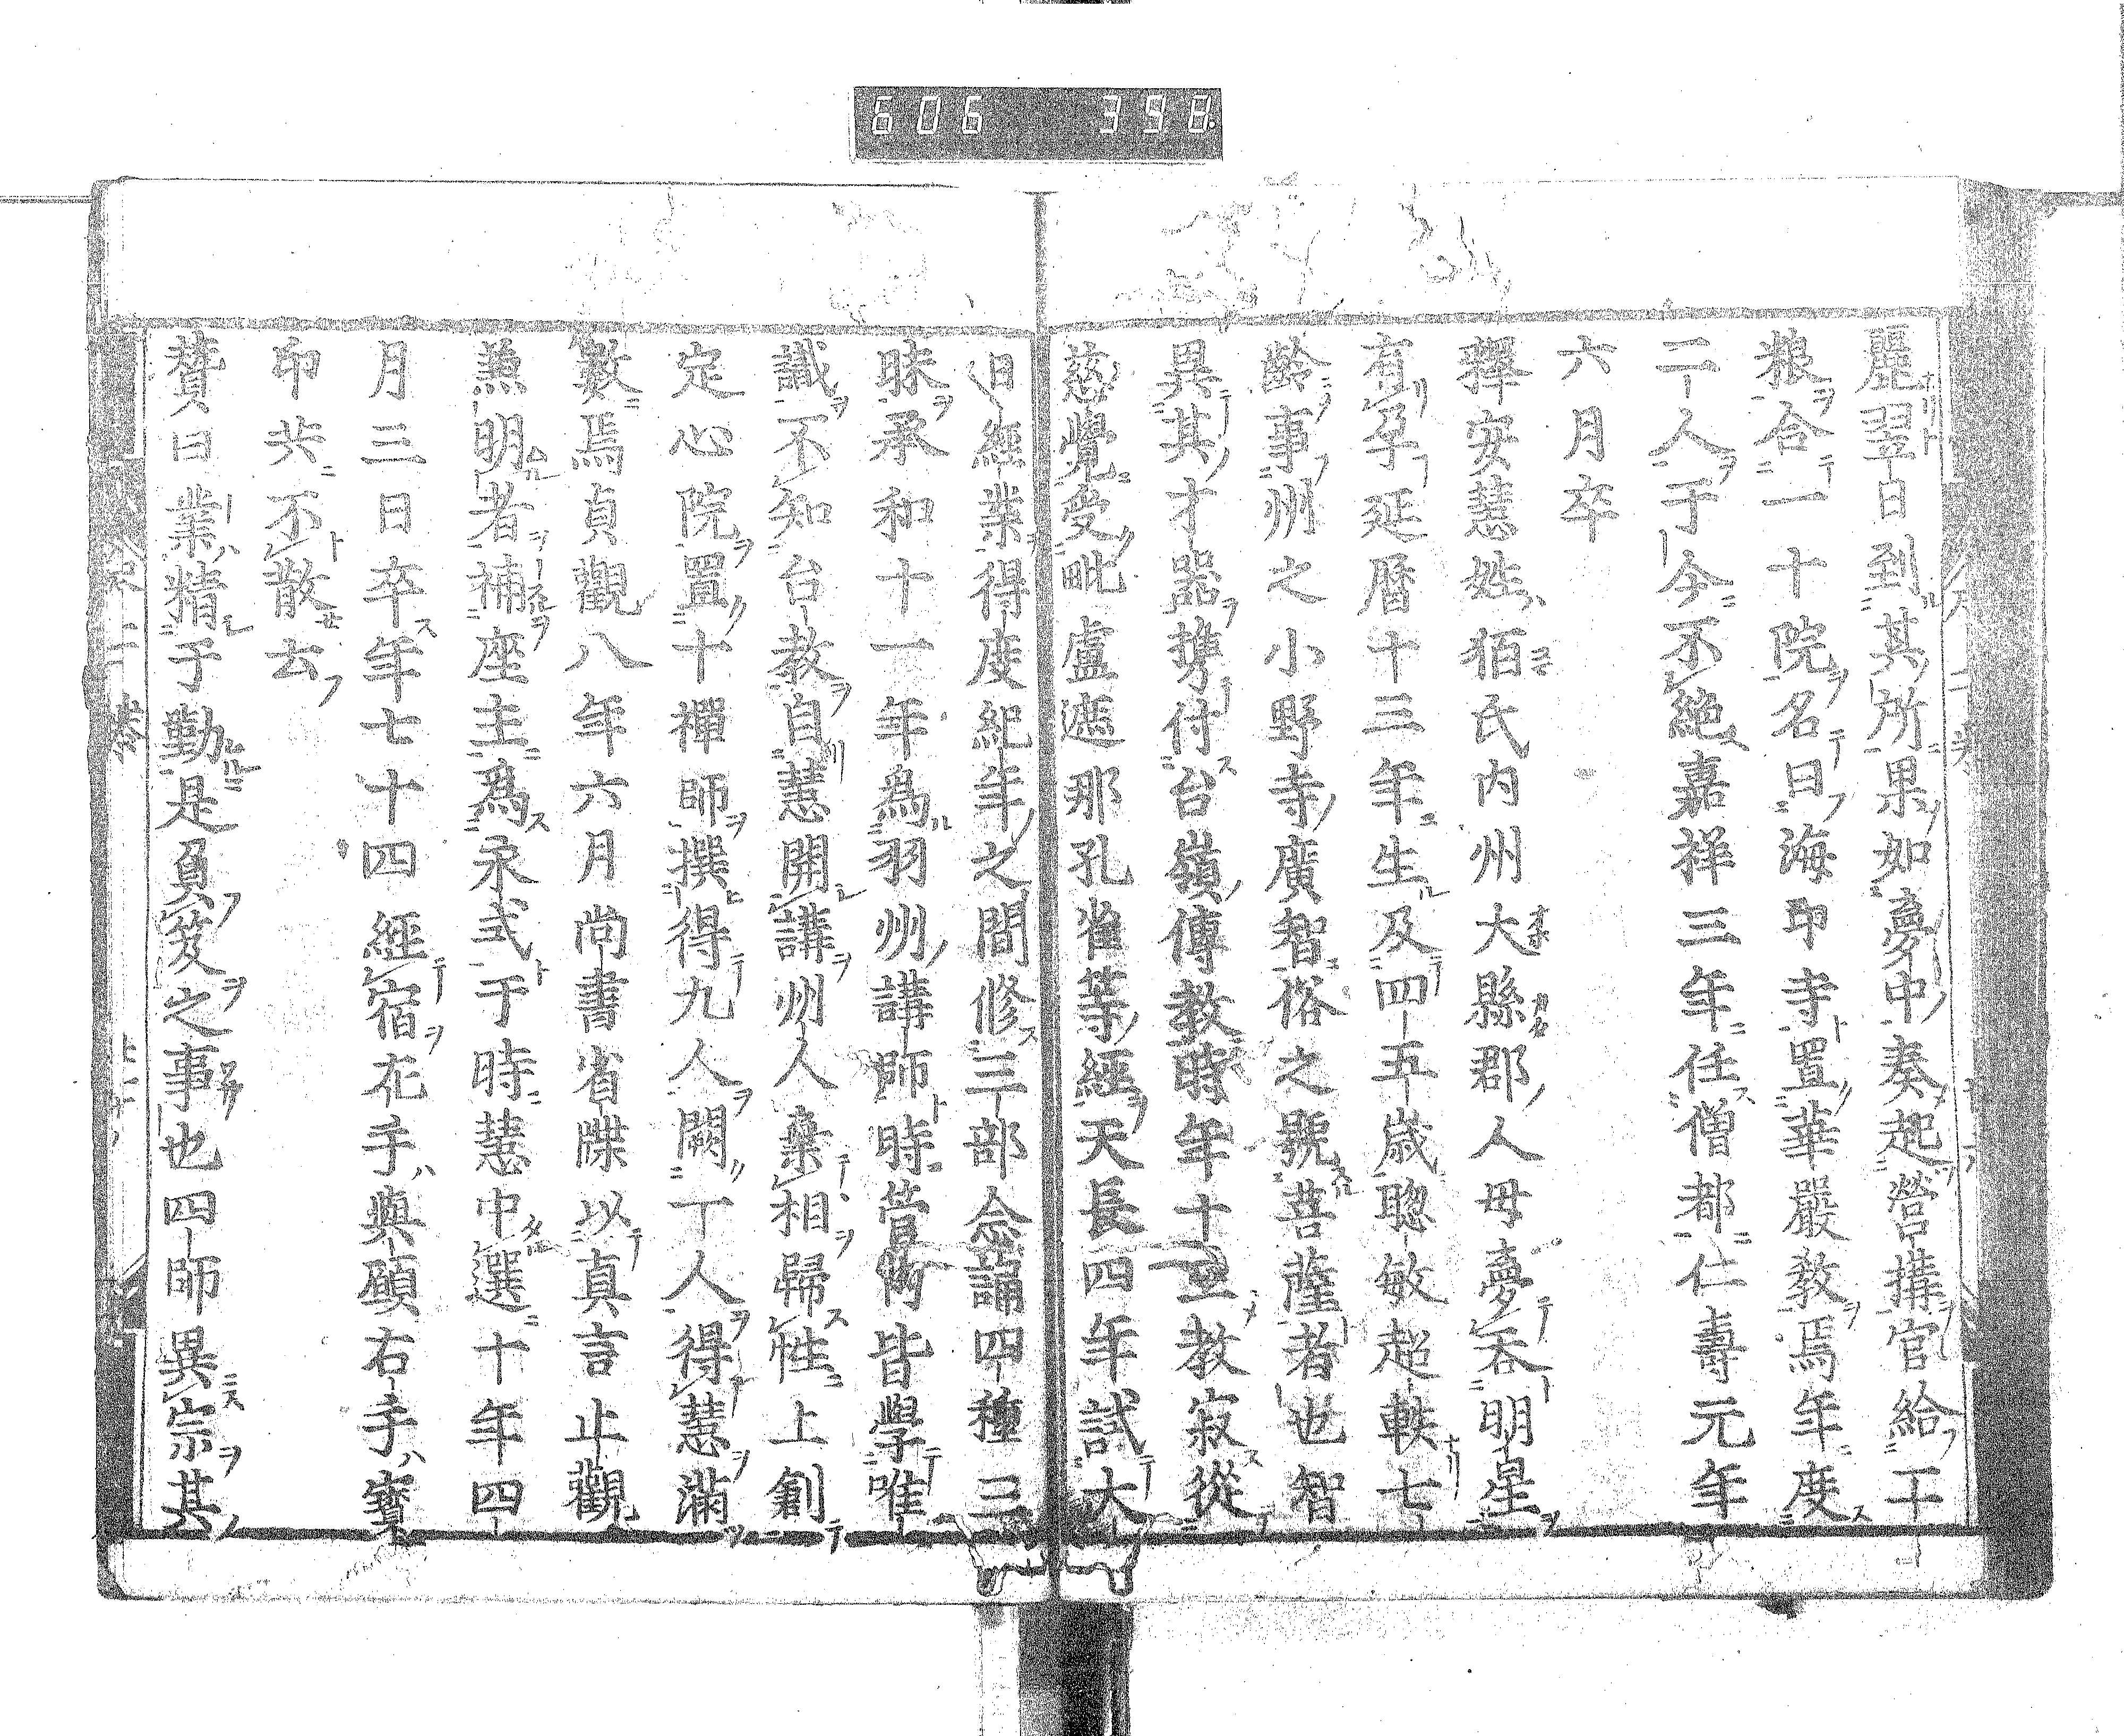 606 398
麗翌日到其所果如夢中奏起營構官給千
粮合一十院名曰海印寺置華嚴教焉年度
二人于今不絶嘉祥三年任僧都仁壽元年
六月卒
釋安慧姓狛氏内州大縣郡人母夢呑明星
有孕延曆十三年生及四五歳聰敏超軼七
齢事州之小野寺廣智俗之號菩薩者也智
異其才器携付台嶺傳教時年十三教寂從
慈覺受毗盧遮那孔雀等經天長四年試大
日經業得度紀年之間修三部念誦四種三
昧承和十一年為羽州講師時管内皆學唯
識不知台教自慧開講州人棄相歸性上創
定心院置十禪師撰得九人闕一人得慧滿
數焉貞觀八年六月尚書省牒以真言止觀
兼明者補座主為永式于時慧中選十年四
月三日卒年七十四經宿左手與願右手寶
印共不散云
賛曰業精于勤是負笈之事也四師異宗其